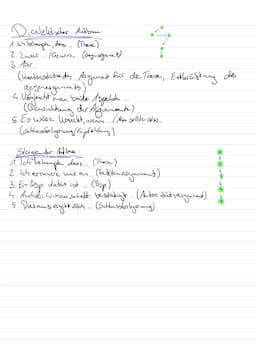 Dialektischer Aufbau
1. Ich behaupte, dass... (These)
2. Zwar... / Gewiss... (Gegenargument)
3. Aber...
(unterstützendes Argument für die These, Entkräftung des
Gegenarguments)
4. Vergleicht man beide Aspekte...
(Gewichtung der Argumente)
5. Es wäre Wünscht, wenn / Man sollte also...
(Schlussfolgerung/Empfehlung)
Steigender Aufbau:
1. Ich behaupte, dass... (These)
2. Ich erinnere nur an... (Faktenargument)
3. Ein Bsp. dafür ist... (Bsp.)
4. Auch die Wissenschaft bestätigt... (Autoritätsargument)
5. Daraus ergibt sich... (Schlussfolgerung)